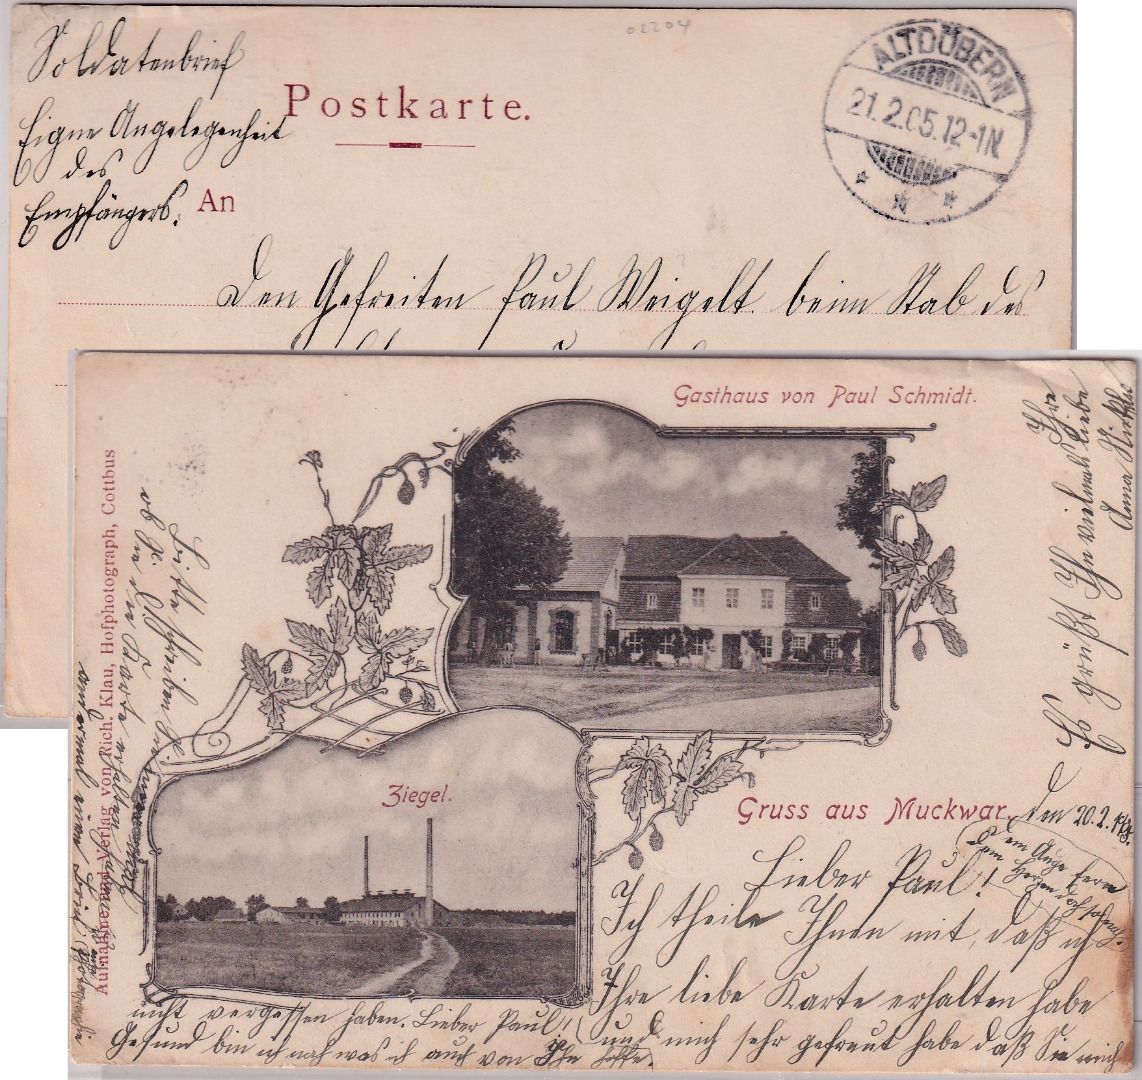 02204
Soldatenbrief
Eigne Angelegenheit
des
Empfängers.
Postkarte.
An
ALTDÖBERN
21.2.05.12-1N
Den Gefreiten Paul Weigelt beim Stab des
Gasthaus von Paul Schmidt.
Ziegel.
Gruss aus Muckwar.
den 20.2.
Aufnahme und Verlag von Rich. Klau, Hofphotograph, Cottbus
Dem Auge fern
Dem Herzen
Lieber Paul!
Ich theile Ihnen mit daß ich
Ihre liebe Karte erhalten habe
und mich sehr gefreut habe daß Sie mich
nicht vergessen haben. Lieber Paul!
Gesund bin ich noch was ich auch von Ihn hoffe.
Bitte schreiben Sie
ob Sie
Karte erhalten haben
Es grüßt Ihn vielmals
Ihre liebe
Anna